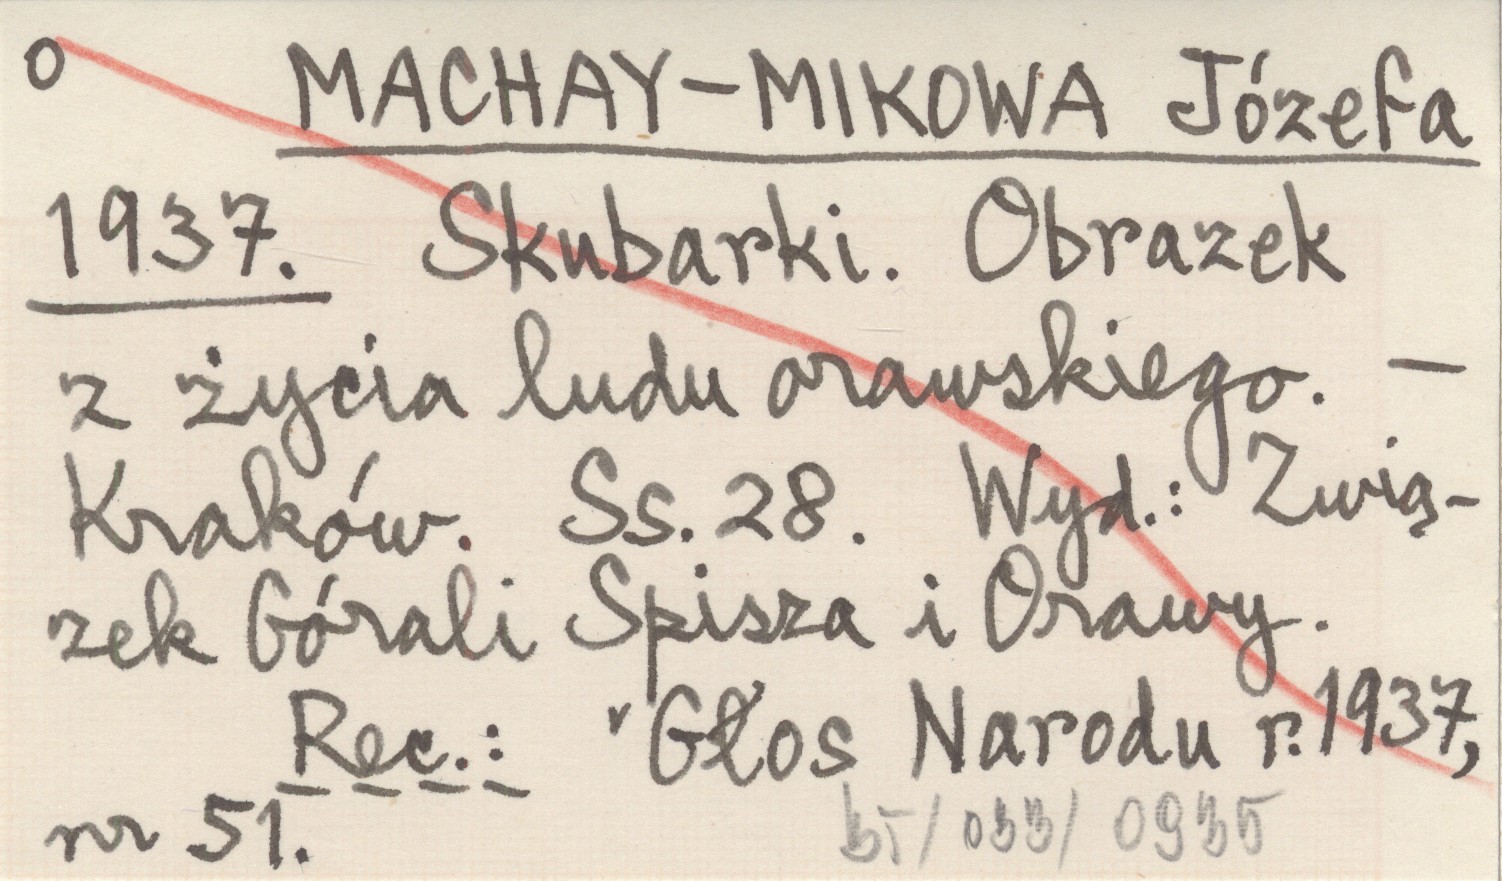 o MACHAY-MIKOWA Józefa
1937. Skubarki. Obrazek
z życia ludu orawskiego. —
Kraków. Ss. 28. Wyd.: Zwią-
zek Górali Spisza i Orawy.
Rec.: "Głos Narodu r. 1937,
nr 51.
bT/033/0935